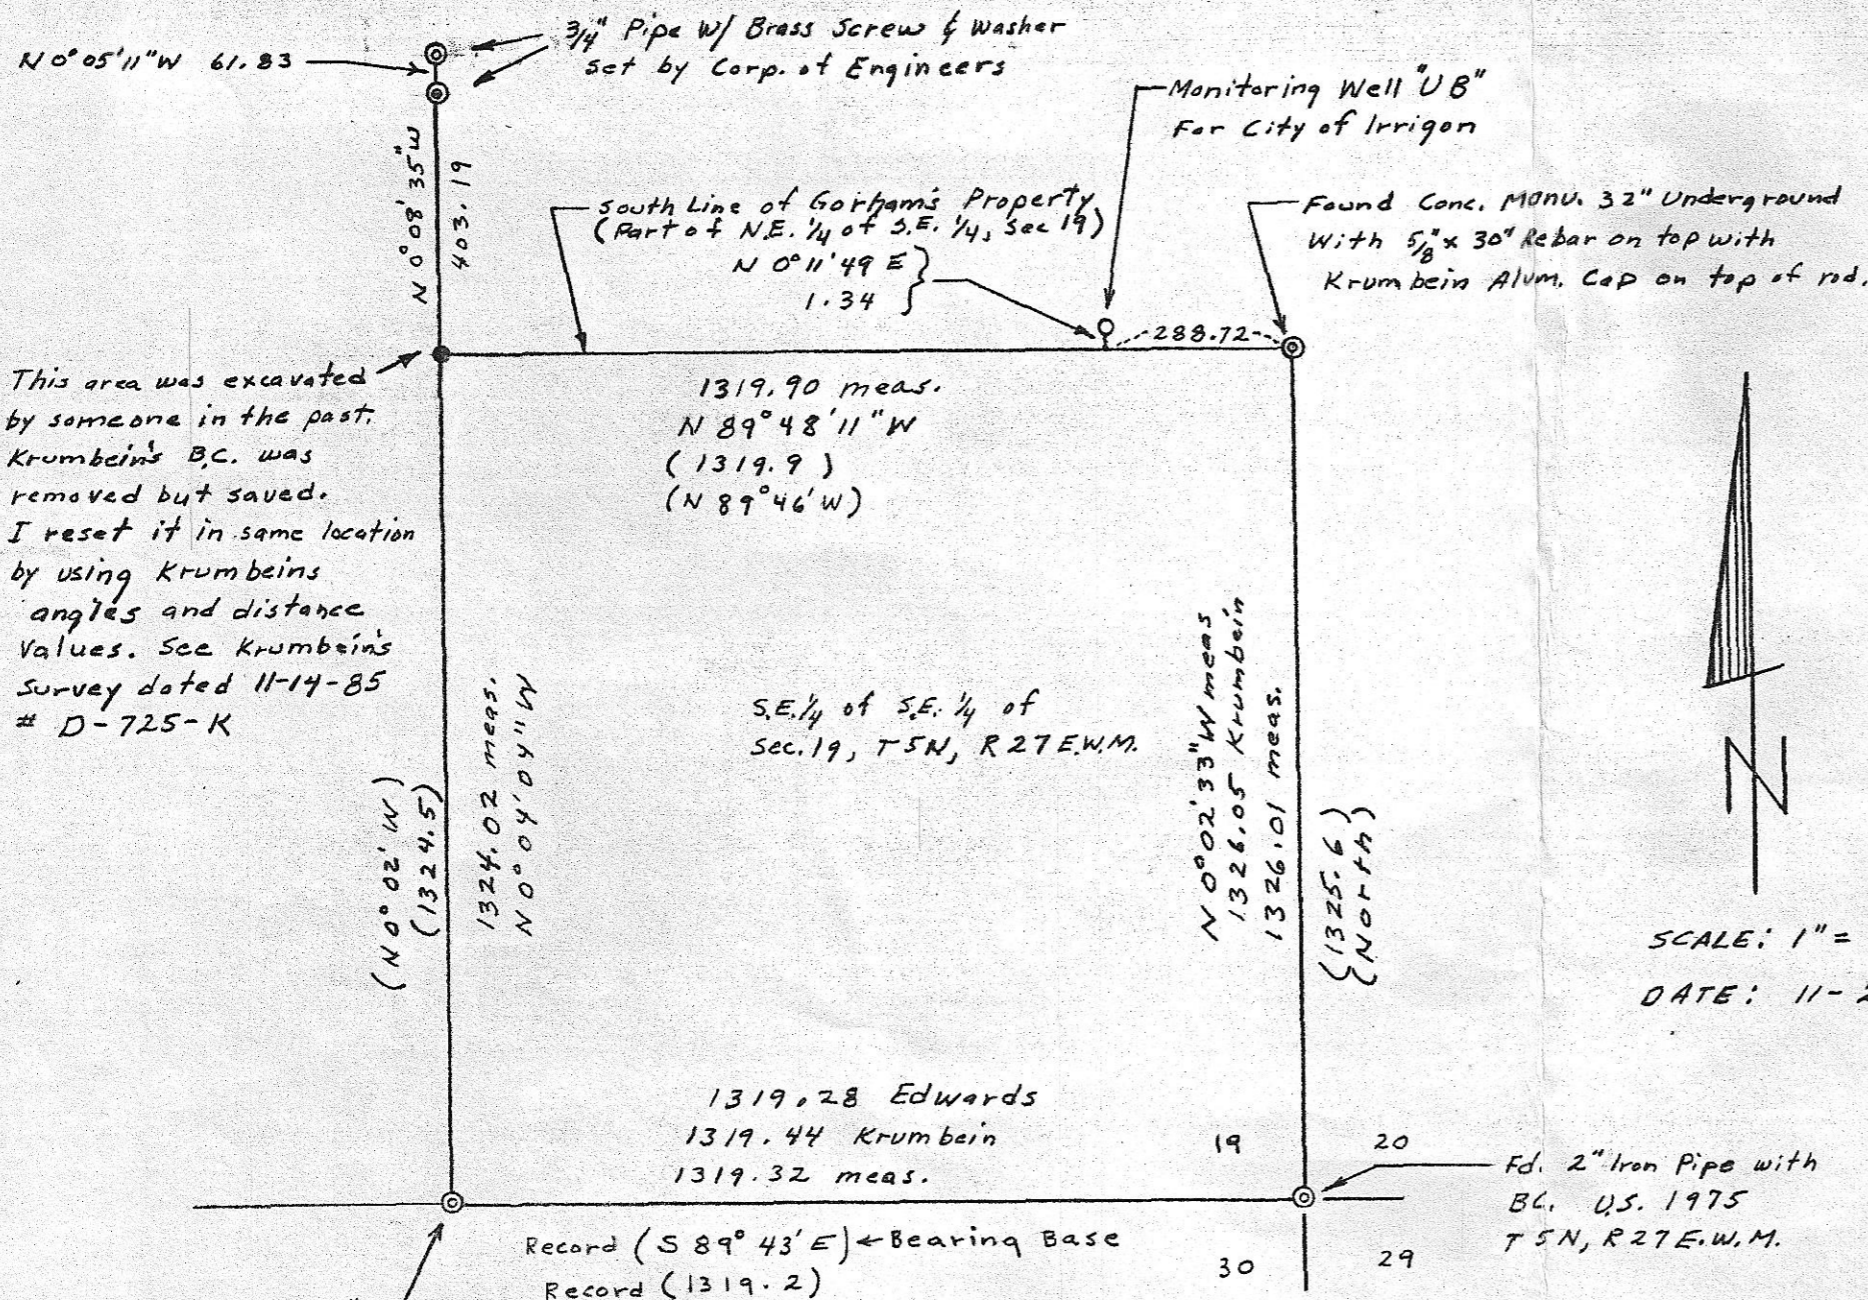 N 0° 05' 11" W 61.83
3/4" Pipe W/ Brass Screw & Washer
set by Corp. of Engineers
Monitoring Well "UB"
For City of Irrigon
N 0° 08' 35" W
403.19
South Line of Gorham's Property
(Part of N.E. 1/4 of S.E. 1/4, Sec 19)
N 0° 11' 49 E
1.34
Found Conc. Monu. 32" Underground
With 5/8" x 30" Rebar on top with
Krumbein Alum. Cap on top of rod.
288.72
This area was excavated
by someone in the past.
Krumbein's B.C. was
removed but saved.
I reset it in same location
by using Krumbeins
angles and distance
Values. See Krumbein's
Survey dated 11-14-85
# D-725-K
1319.90 meas.
N 89° 48' 11" W
(1319.9)
(N 89° 46' W)
S.E. 1/4 of S.E. 1/4 of
Sec. 19, T 5N, R 27 E.W.M.
(N 0° 02' W)
(1324.5)
1324.02 meas.
N 0° 04' 04" W
N 0° 02' 33" W meas
1326.05 Krumbein
1326.01 meas.
(1325.6)
(North)
N
SCALE: 1" =
DATE: 11-
1319.28 Edwards
1319.44 Krumbein
1319.32 meas.
19
20
Fd. 2" Iron Pipe with
BC. U.S. 1975
T 5N, R 27 E.W.M.
Record (S 89° 43' E) ← Bearing Base
Record (1319.2)
30
29